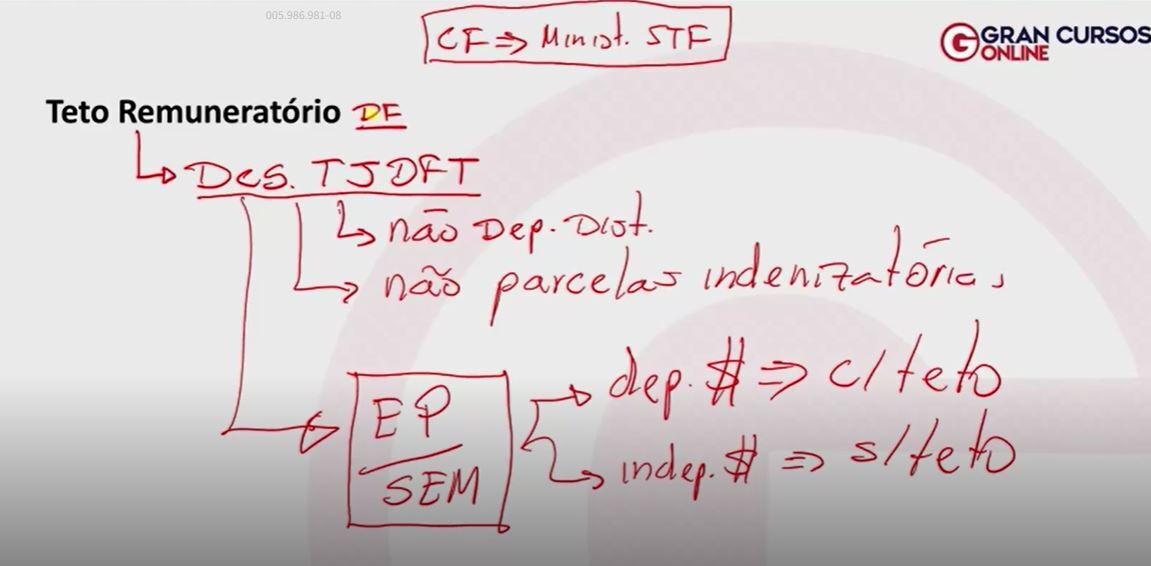 005.986.981-08
CF ⇒ Minist. STF
GRAN CURSOS
ONLINE
Teto Remuneratório DF
Des. TJDFT
não Dep. Dist.
não parcelas indenizatórias
dep. $ ⇒ c/ teto
EP
SEM
indep. $ ⇒ s/ teto